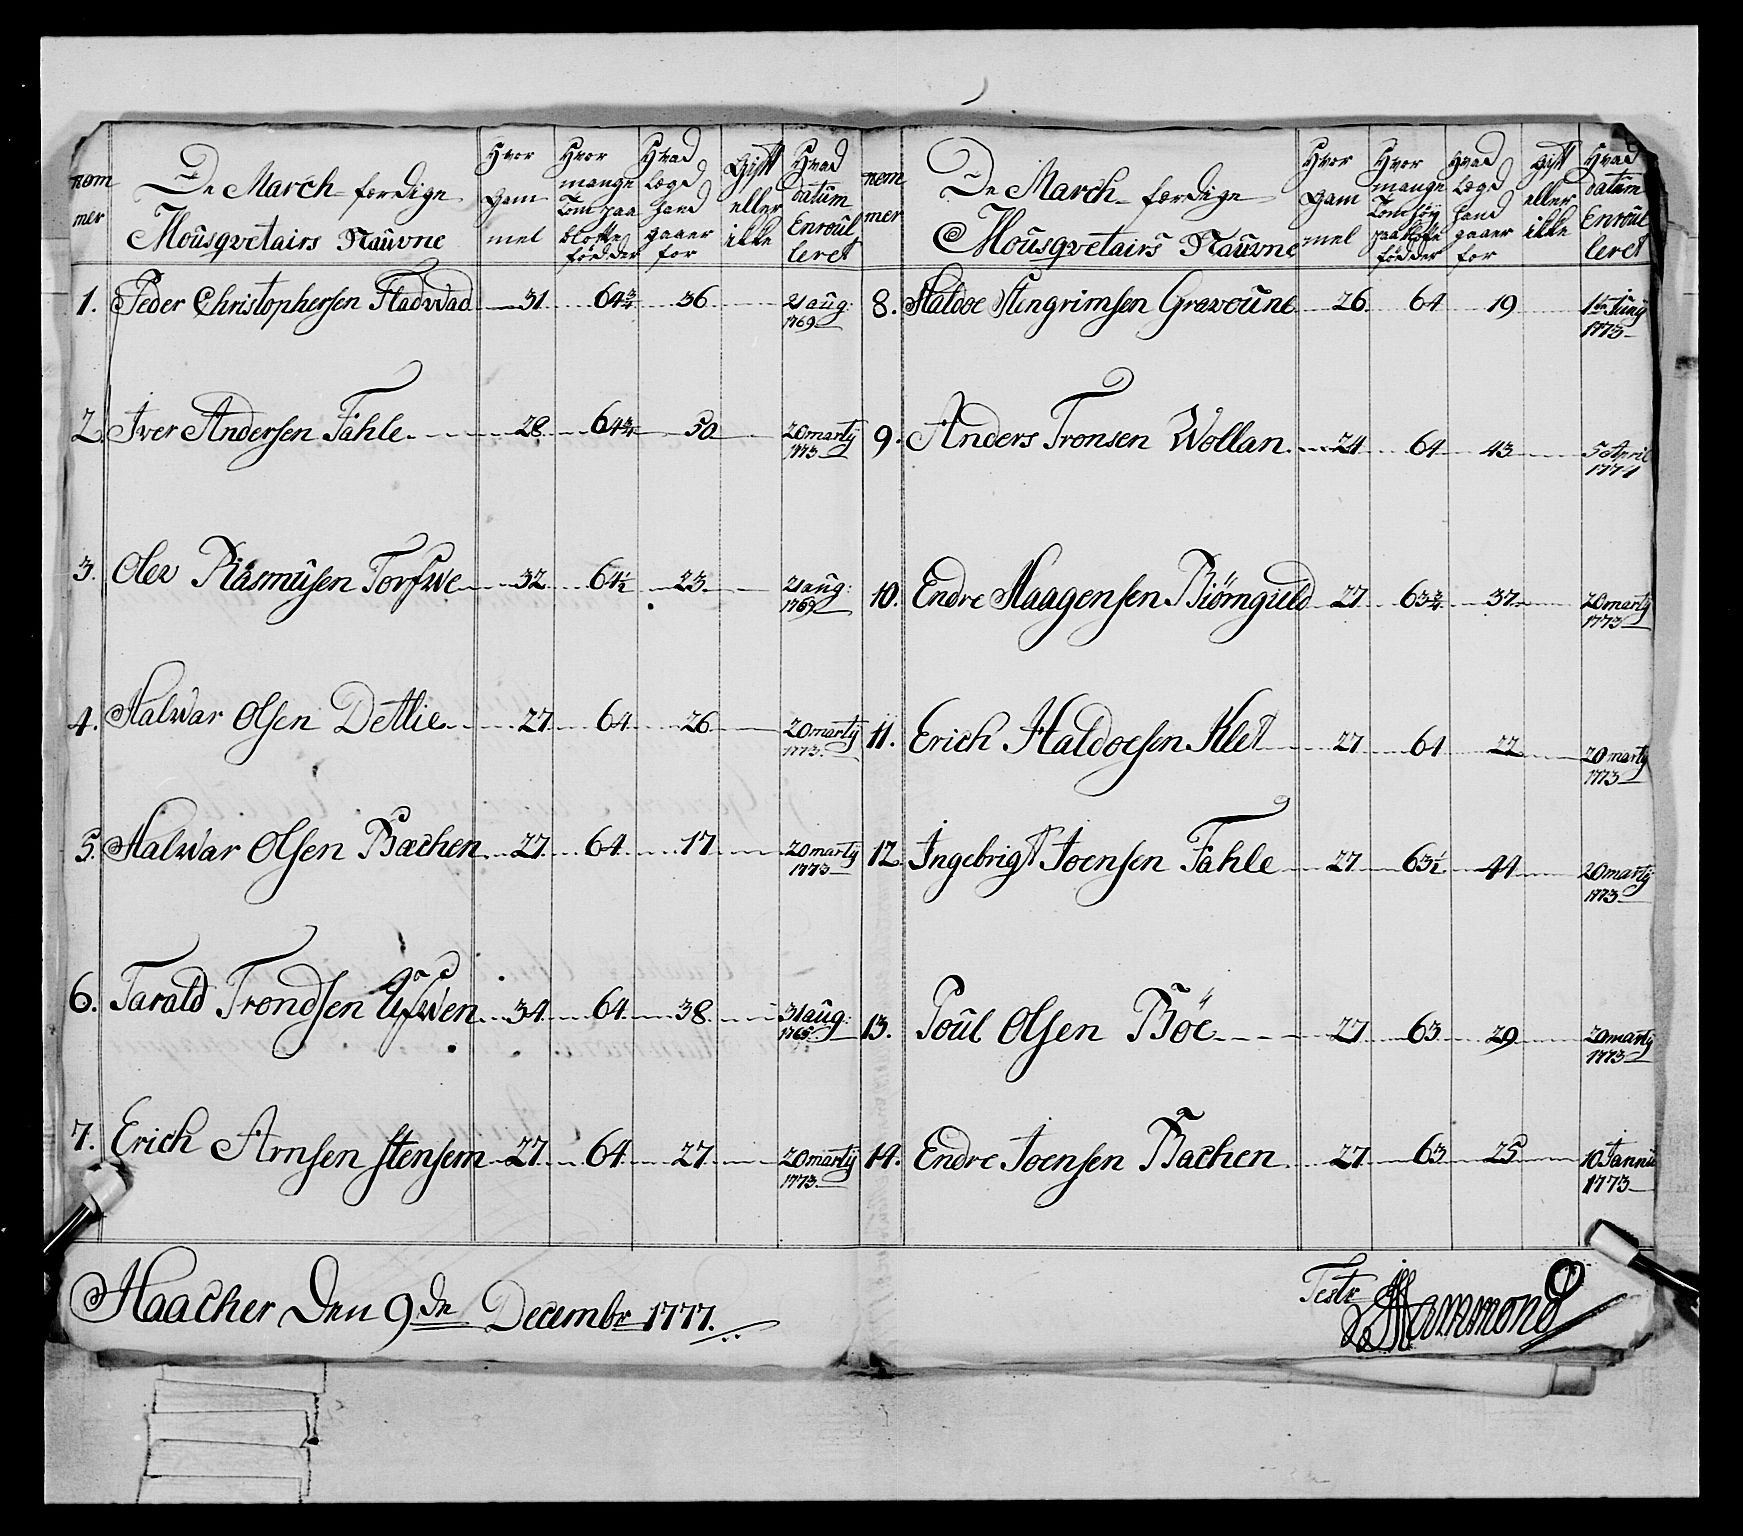 nom mer
De March færdige Mousqvetairs Nauvne
Hvor gam mel
Hvor mange Tom paa blotte fødder
Hvad Lægd hand gaaer for
Gift eller ikke
Hvad datum Enroul leret
1. Peder Christophersen Fladwad 31 64¾ 36 21 aug: 1769
2. Iver Andersen Fahle 28 64¾ 50 20 marty 1773
3. Olev Rasmusen Torfwe 32 64½ 23 21 aug: 1769
4. Halwar Olsen Dettlie 27 64 26 20 marty 1773
5. Halwar Olsen Bachen 27 64 17 20 marty 1773
6. Tarald Trondsen 34 64 38 31 aug:
7. Erich Arnsen Stensem 27 64 27 20 marty 1773
nom mer
De March færdige Mousqvetairs Nauvne
Hvor gam mel
Hvor mange Tom høy paa blotte fødder
Hvad Lægd hand gaaer for
Gift eller ikke
Hvad datum Enroul leret
8. Haldoe Stengrimsen Gravoune 26 64 19 Juny 1773
9. Anders Tronsen Wollan 24 64 43 5 April 1774
10. Endre Haagensen Biörnguld 27 63¾ 37 20 marty 1773
11. Erich Haldoesen Klet 27 64 22 20 marty 1773
12. Ingebrigt Joensen Fahle 27 63½ 44 20 marty 1773
13. Poul Olsen Böe 27 63 29 20 marty 1773
14. Endre Joensen Bachen 27 63 25 10 Januu 1773
Haacher Den 9de Decembr 1777.
Testr
Hammond